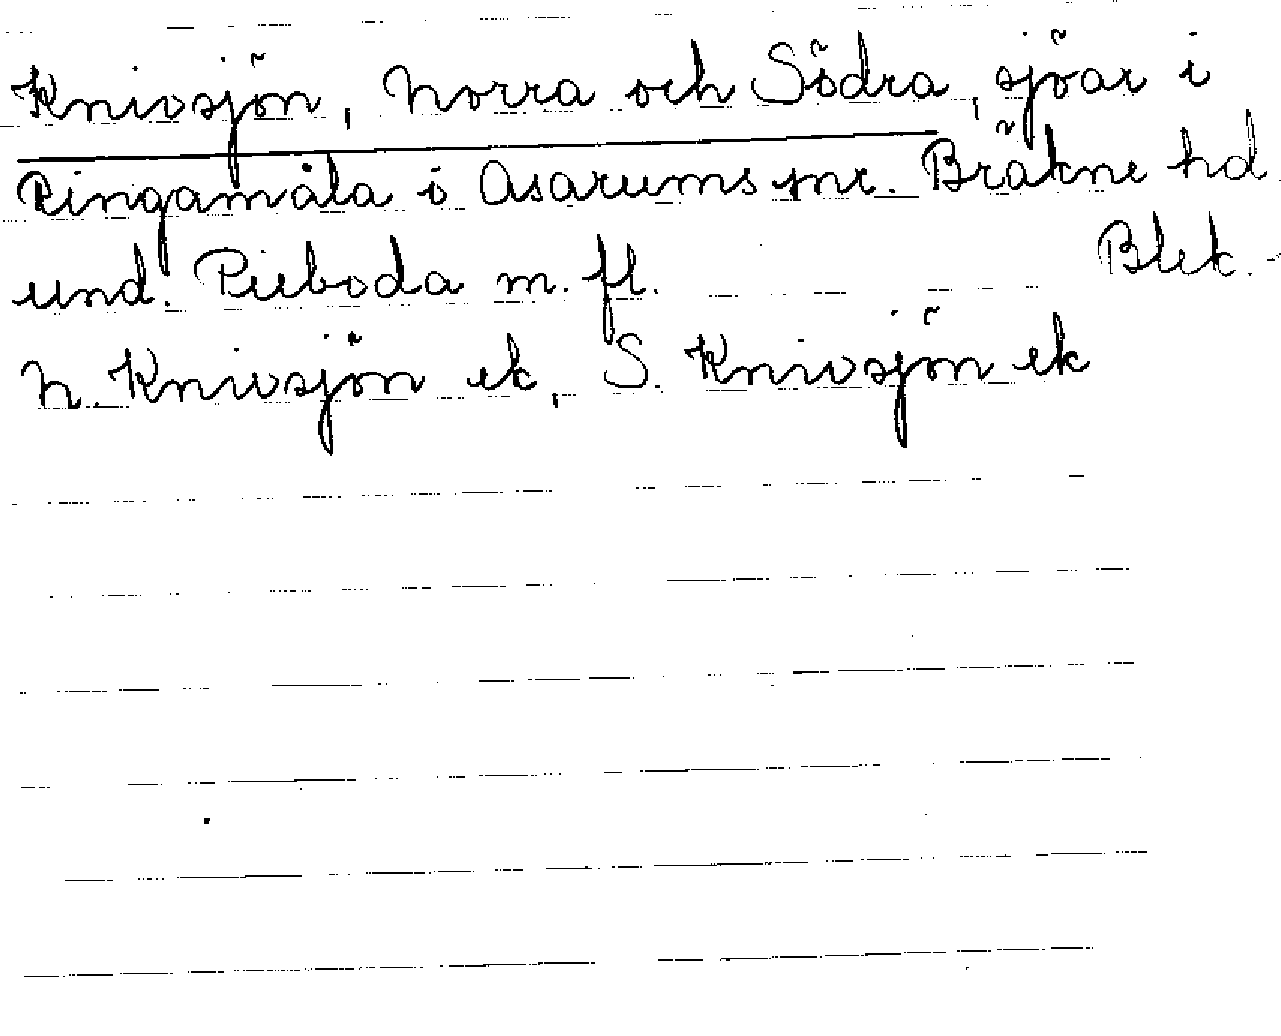 Knivsjön, Norra och Södra, sjöar i
Ringamåla i Asarums snr. Bräkne hd
und. Pieboda m. fl. Blek.
N. Knivsjön ek, S. Knivsjön ek